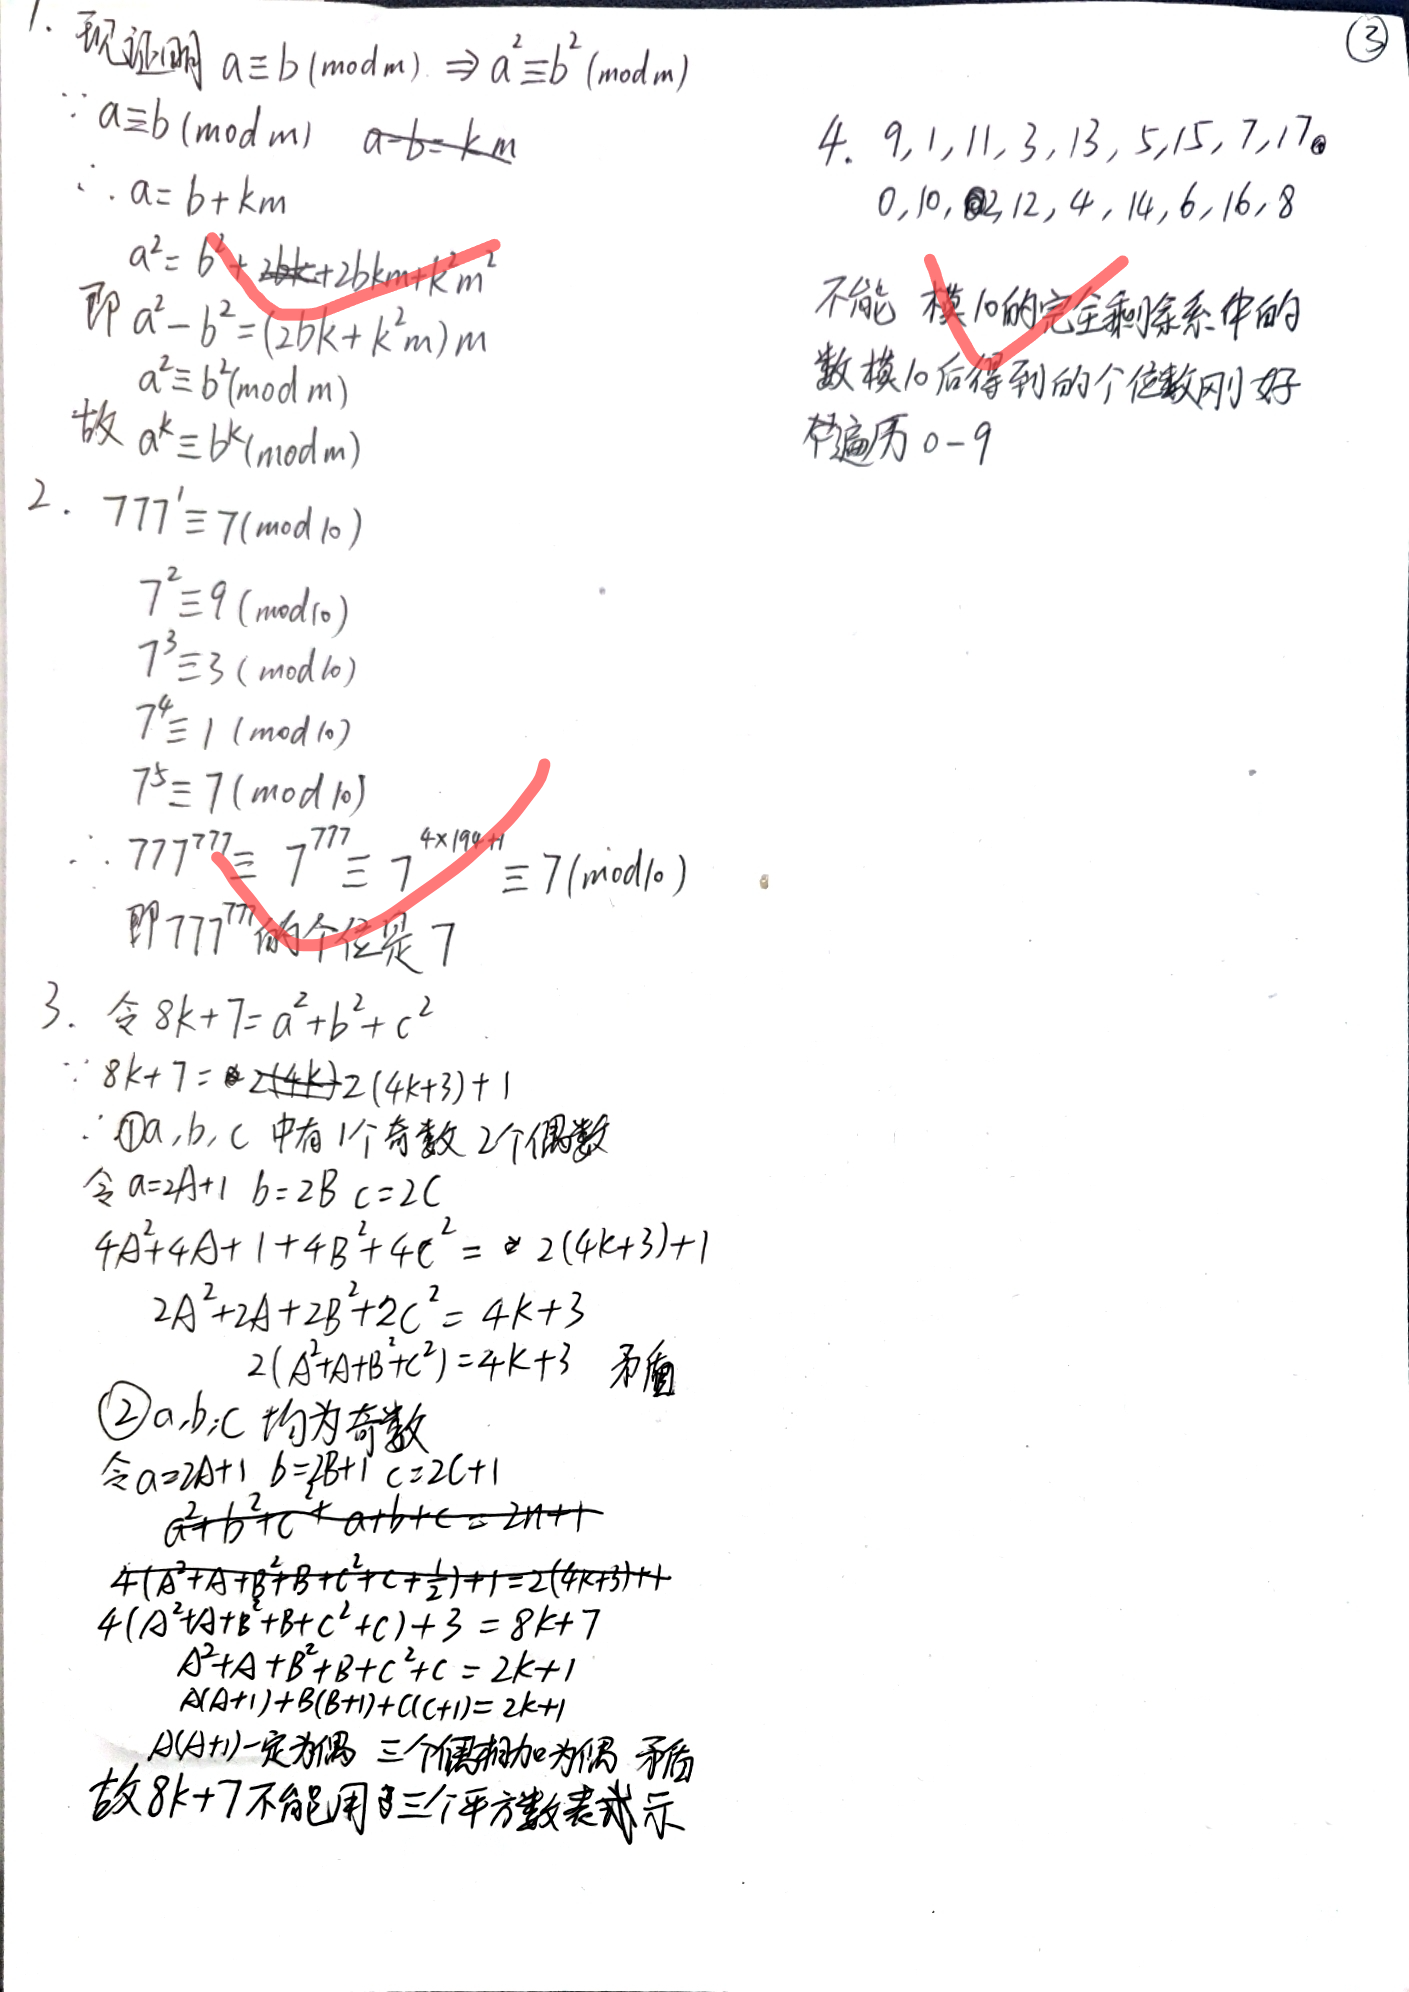 ③
1. 现证明 a≡b(mod m) ⇒ a²≡b²(mod m)
∵ a≡b(mod m) a-b=km
∴ a=b+km
a²=b²+2bk+2bkm+k²m²
即 a²-b²=(2bk+k²m)m
a²≡b²(mod m)
故 aᵏ≡bᵏ(mod m)
2. 777¹≡7(mod 10)
7²≡9(mod 10)
7³≡3(mod 10)
7⁴≡1(mod 10)
7⁵≡7(mod 10)
∴ 777⁷⁷⁷≡7⁷⁷⁷≡7⁴ˣ¹⁹⁴⁺¹≡7(mod 10)
即777⁷⁷⁷的个位是7
3. 令8k+7=a²+b²+c²
∵ 8k+7=2(4k)2(4k+3)+1
∴ ①a,b,c 中有1个奇数 2个偶数
令a=2A+1 b=2B c=2C
4A²+4A+1+4B²+4C²=2(4k+3)+1
2A²+2A+2B²+2C²=4k+3
2(A²+A+B²+C²)=4k+3 矛盾
②a,b,c 均为奇数
令a=2A+1 b=2B+1 c=2C+1
a²+b²+c²+a+b+c=2n+1
4(A²+A+B²+B+C²+C+1/2)+1=2(4k+3)+1
4(A²+A+B²+B+C²+C)+3=8k+7
A²+A+B²+B+C²+C=2k+1
A(A+1)+B(B+1)+C(C+1)=2k+1
A(A+1)一定为偶 三个偶相加为偶 矛盾
故8k+7不能用三个平方数表示
4. 9,1,11,3,13,5,15,7,17。
0,10,2,12,4,14,6,16,8
不能 模10的完全剩余系中的
数模10后得到的个位数刚好
遍历0-9